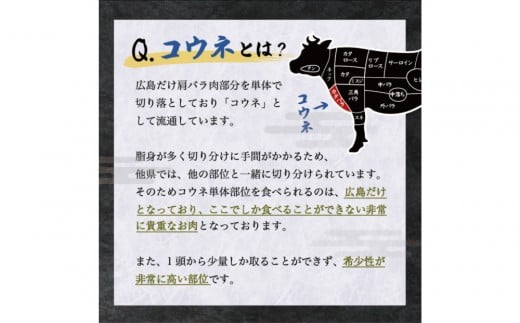 Q.コウネとは?
広島だけ肩バラ肉部分を単体で
切り落としており「コウネ」と
して流通しています。
脂身が多く切り分けに手間がかかるため、
他県では、他の部位と一緒に切り分けられています。
そのためコウネ単体部位を食べられるのは、広島だけ
となっており、ここでしか食べることができない非常
に貴重なお肉となっております。
また、1頭から少量しか取ることができず、希少性が
非常に高い部位です。
タン
ネック
カタ
ロース
リブ
ロース
サーロイン
ヒレ
カタ
ミスジ
三角
バラ
中バラ
中落ち
外バラ
スネ
コウネ